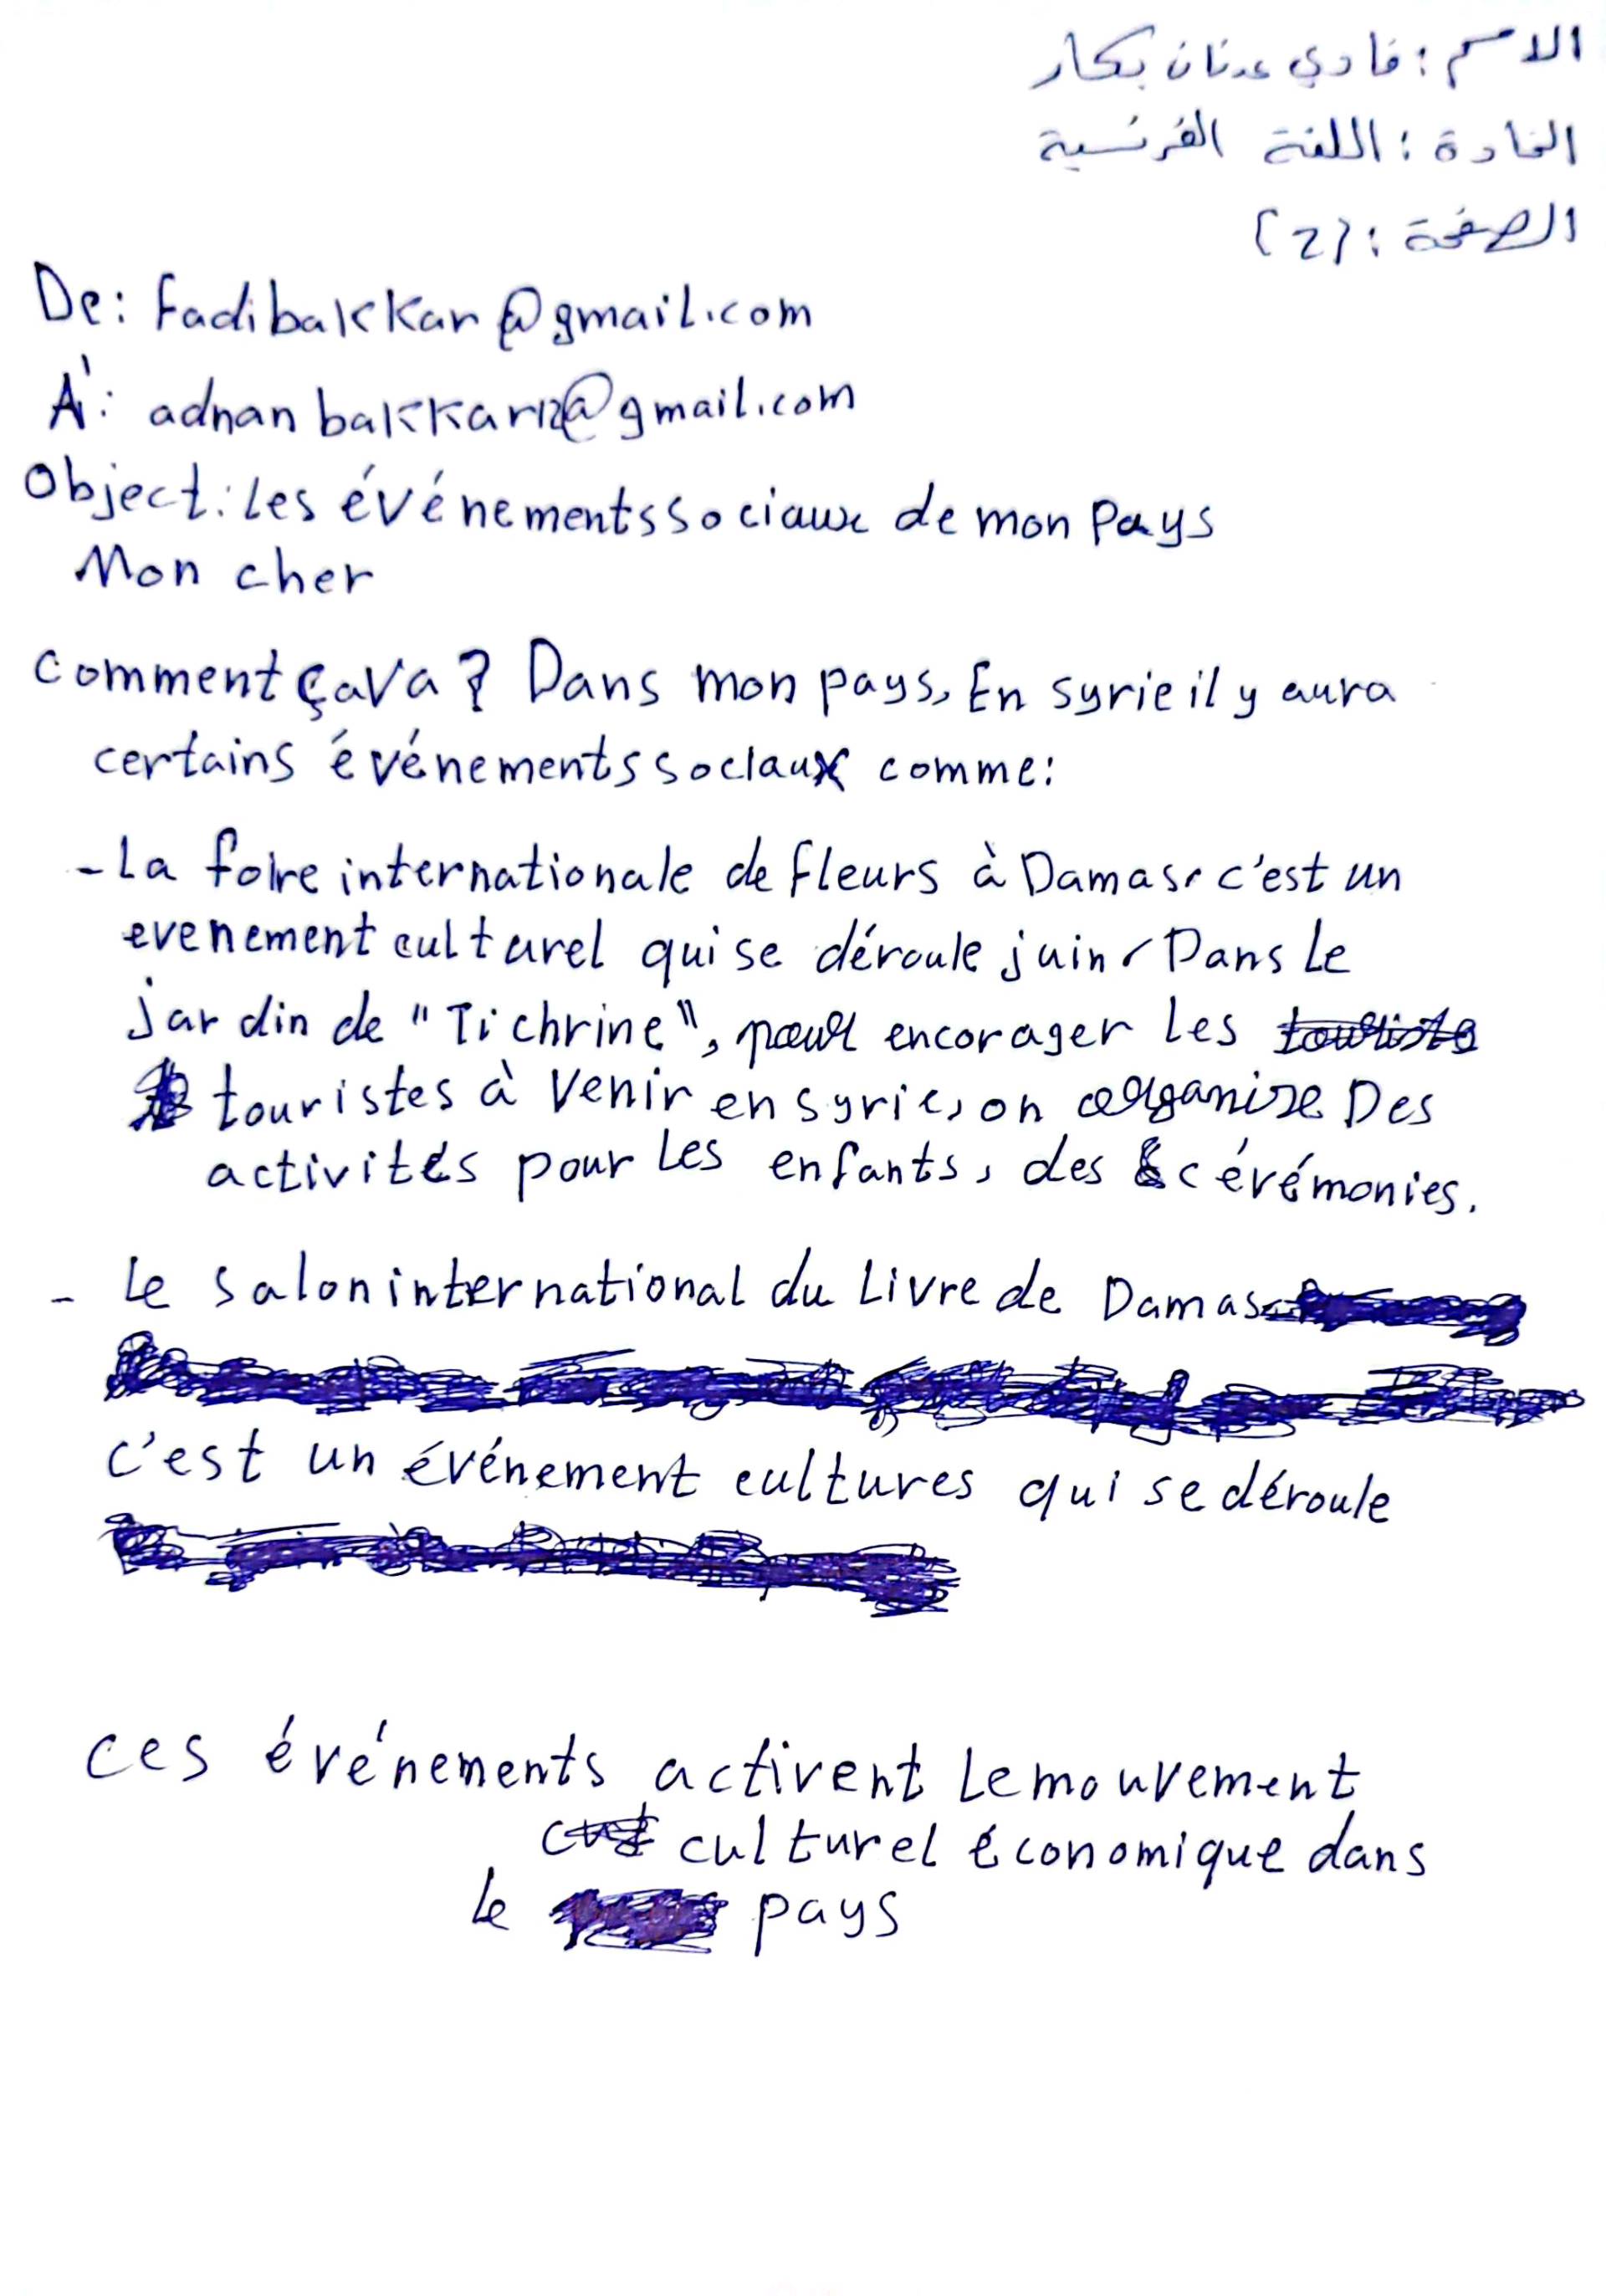 الاسم : فادي عدنان بكار
المادة : اللغة الفرنسية
الصفحة : (2)
De: Fadibakkar@gmail.com
À: adnanbakkar12@gmail.com
Object: Les événements sociaux de mon Pays
Mon cher
comment ça va ? Dans mon pays, En syrie il y aura
certains événements sociaux comme:
- La foire internationale de fleurs à Damas, c'est un
evenement culturel qui se déroule juin, Dans Le
jardin de "Tichrine", pour encorager les
touristes à venir en syrie, on organise Des
activités pour Les enfants, des cérémonies.
- Le salon international du Livre de Damas
c'est un événement cultures qui se déroule
ces événements activent Le mouvement
culturel économique dans
le pays